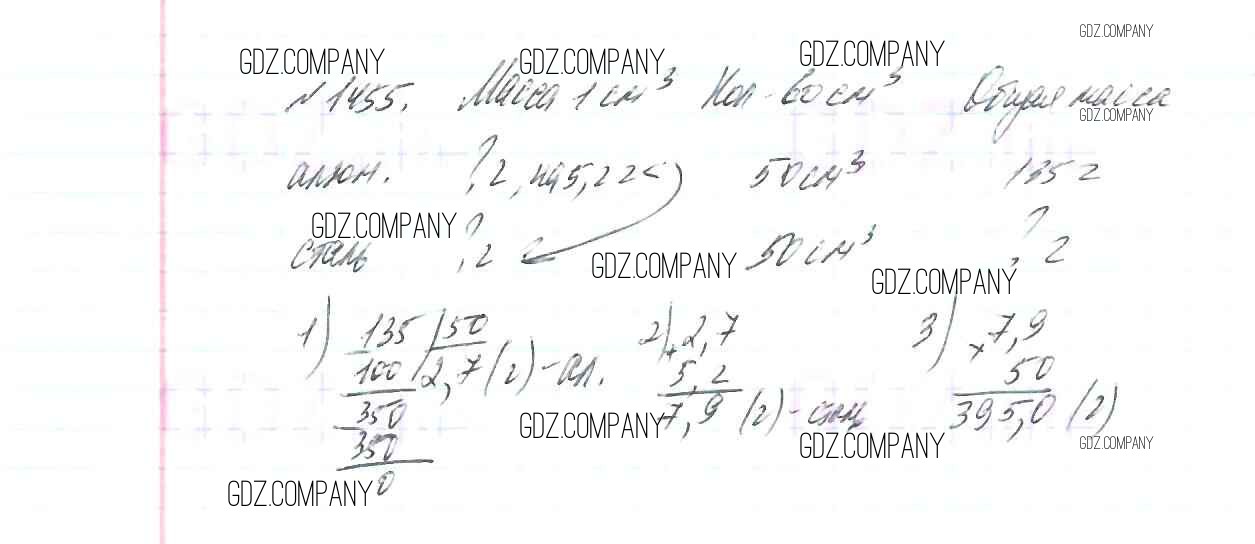 GDZ.COMPANY
GDZ.COMPANY GDZ.COMPANY GDZ.COMPANY
№1455. Масса 1 см³ Кол-во см³ Общая масса
GDZ.COMPANY
алюм. ? г, на 5,2 г < 50 см³ 135 г
GDZ.COMPANY
сталь ? г 50 см³ ? г
GDZ.COMPANY
GDZ.COMPANY
1) 135 | 50 2) 2,7 3) 7,9
- 100 | 2,7 (г) - ал. + 5,2 × 50
350 7,9 (г) - стал 395,0 (г)
- 350 GDZ.COMPANY GDZ.COMPANY GDZ.COMPANY
0
GDZ.COMPANY